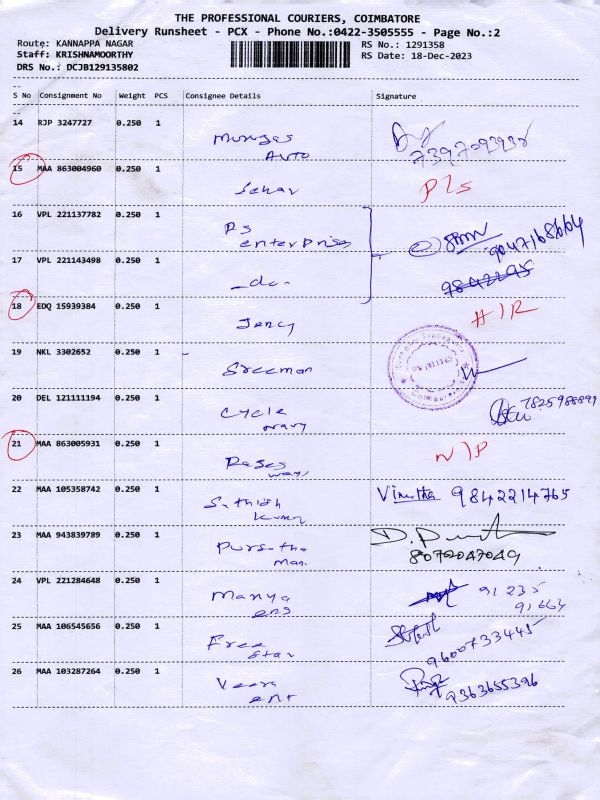 THE PROFESSIONAL COURIERS, COIMBATORE
Delivery Runsheet - PCX - Phone No.:0422-3505555 - Page No.:2
Route: KANNAPPA NAGAR
Staff: KRISHNAMOORTHY
DRS No.: DCJB129135802
RS No.: 1291358
RS Date: 18-Dec-2023
S No Consignment No Weight PCS Consignee Details Signature
14 RJP 3247727 0.250 1
Auto
15 MAA 863004960 0.250 1
16 VPL 221137782 0.250 1 PS
enterprises
9047168664
17 VPL 221143498 0.250 1 -do-
18 EDQ 15939384 0.250 1 Jency
19 NKL 3302652 0.250 1 Sreeman
20 DEL 121111194 0.250 1 Cycle 7825988899
21 MAA 863005931 0.250 1 N/P
22 MAA 105358742 0.250 1 Sathish Vinutha 9842214765
Kumar
23 MAA 943839789 0.250 1
man 8072047049
24 VPL 221284648 0.250 1 Manya 91 235
ens 91 664
25 MAA 106545656 0.250 1 Free
Star 9600733445
26 MAA 103287264 0.250 1 Veera
ent 9363655396